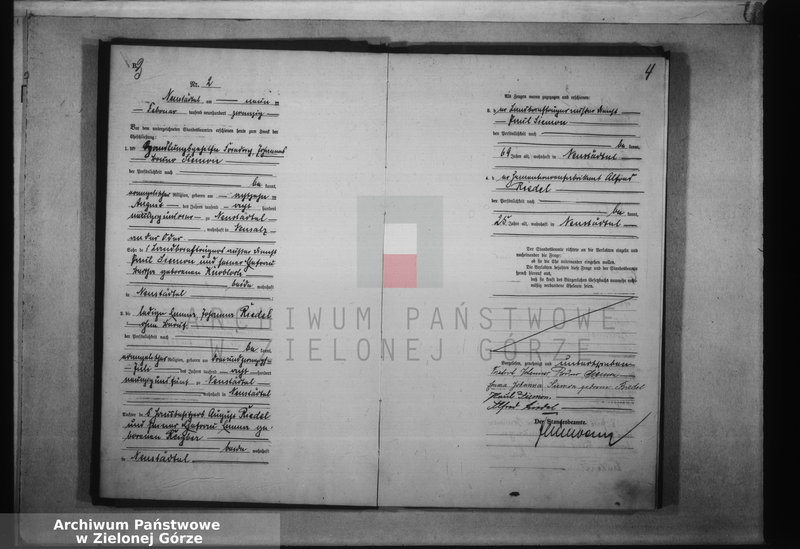 B.
3
Nr. 2
Neustädtel am neun
Februar tausend neunhundert zwanzig
Vor dem unterzeichneten Standesbeamten erschienen heute zum Zweck der
Eheschließung:
1. der Handlungsgehilfe Friedrich Johannes
Bruno Siemon
der Persönlichkeit nach
be kannt,
evangelischer Religion, geboren am achtzehn
August des Jahres tausend acht hundert
zu Neustädtel
wohnhaft in Neusalz
an der Oder
Sohn des Landbriefträgers außer Dienst
Paul Siemon und seiner Ehefrau
geborenen
beide wohnhaft
in Neustädtel
2. die ledige Emma Johanna Riedel
ohne Beruf
der Persönlichkeit nach
be kannt,
evangelischer Religion, geboren am
Juli des Jahres tausend acht hundert
zu Neustädtel
wohnhaft in Neustädtel
Tochter des Hausbesitzers August Riedel
und seiner Ehefrau Emma ge-
borenen
beide wohnhaft
in Neustädtel
4
Als Zeugen waren zugezogen und erschienen:
3. der Landbriefträger außer Dienst
Paul Siemon
der Persönlichkeit nach
be kannt,
64 Jahre alt, wohnhaft in Neustädtel
4. der Zementwarenfabrikant Alfred
Riedel
der Persönlichkeit nach
be kannt,
25 Jahre alt, wohnhaft in Neustädtel
Der Standesbeamte richtete an die Verlobten einzeln und
nacheinander die Frage:
ob sie die Ehe miteinander eingehen wollen.
Die Verlobten bejahten diese Frage und der Standesbeamte
sprach hierauf aus,
daß sie kraft des Bürgerlichen Gesetzbuchs nunmehr recht-
mäßig verbundene Eheleute seien.
Vorgelesen, genehmigt und unterschrieben
Friedrich Johannes Bruno Siemon
Emma Johanna Siemon geborene Riedel
Paul Siemon.
Alfred Riedel
Der Standesbeamte.
ARCHIWUM PAŃSTWOWE
W ZIELONEJ GÓRZE
Archiwum Państwowe
w Zielonej Górze